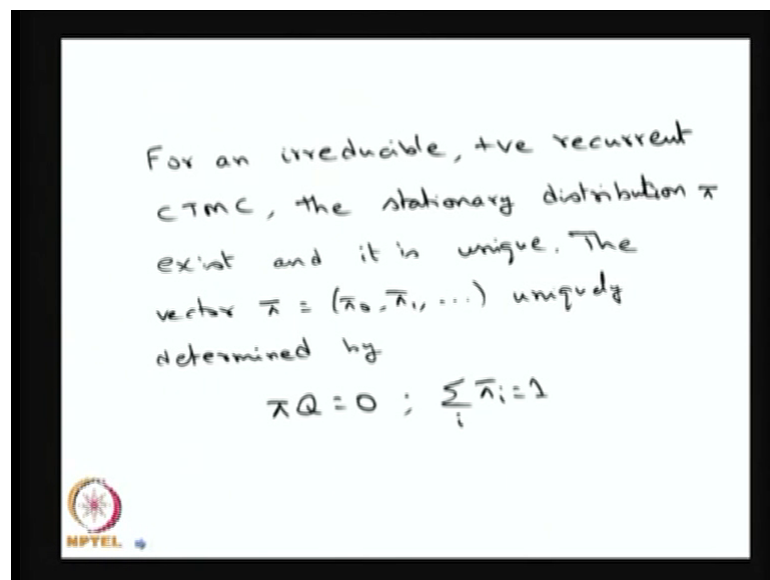 For an irreducible, +ve recurrent
CTMC, the stationary distribution π
exist and it is unique. The
vector π = (π₀, π₁, ...) uniquely
determined by
πQ = 0 ; ∑ᵢ πᵢ = 1
NPTEL